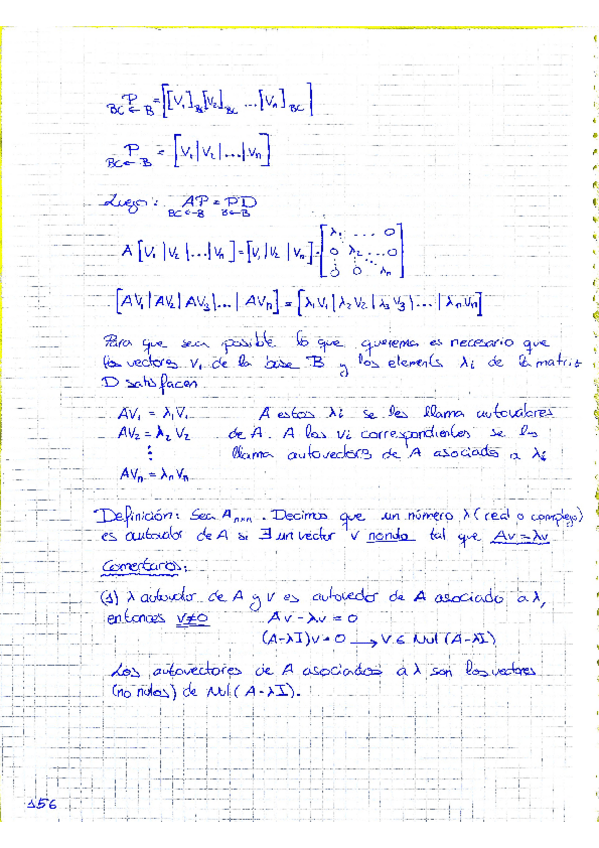 P = [[V₁]_BC [V₂]_BC ... [Vn]_BC]
BC←B
P = [V₁|V₂|...|Vn]
BC←B
Luego: AP = PD
BC←B B←B
A [V₁ | V₂ | ... | Vn] = [V₁ | V₂ | Vn] · [λ₁ ... 0
0 λ₂ ... 0
0 0 λn]
[AV₁ | AV₂ | AV₃ | ... | AVn] = [λ₁V₁ | λ₂V₂ | λ₃V₃ | ... | λnVn]
Para que sea posible lo que queremos es necesario que
los vectores Vi de la base B y los elements λi de la matriz
D satisfacen
AV₁ = λ₁V₁ A estos λi se les llama autovalores
AV₂ = λ₂V₂ de A. A los Vi correspondientes se les
⋮ llama autovectors de A asociado a λi
AVn = λnVn
Definición: Sea Anxn. Decimos que un número λ (real o complejo)
es autovalor de A si ∃ un vector V nonulo tal que Av = λv
Comentarios:
(1) λ autovalor de A y v es autovector de A asociado a λ,
entonces v≠0 Av - λv = 0
(A-λI)v = 0 → v ∈ Nul (A-λI)
Los autovectores de A asociados a λ son los vectores
(no nulos) de Nul (A-λI).
156